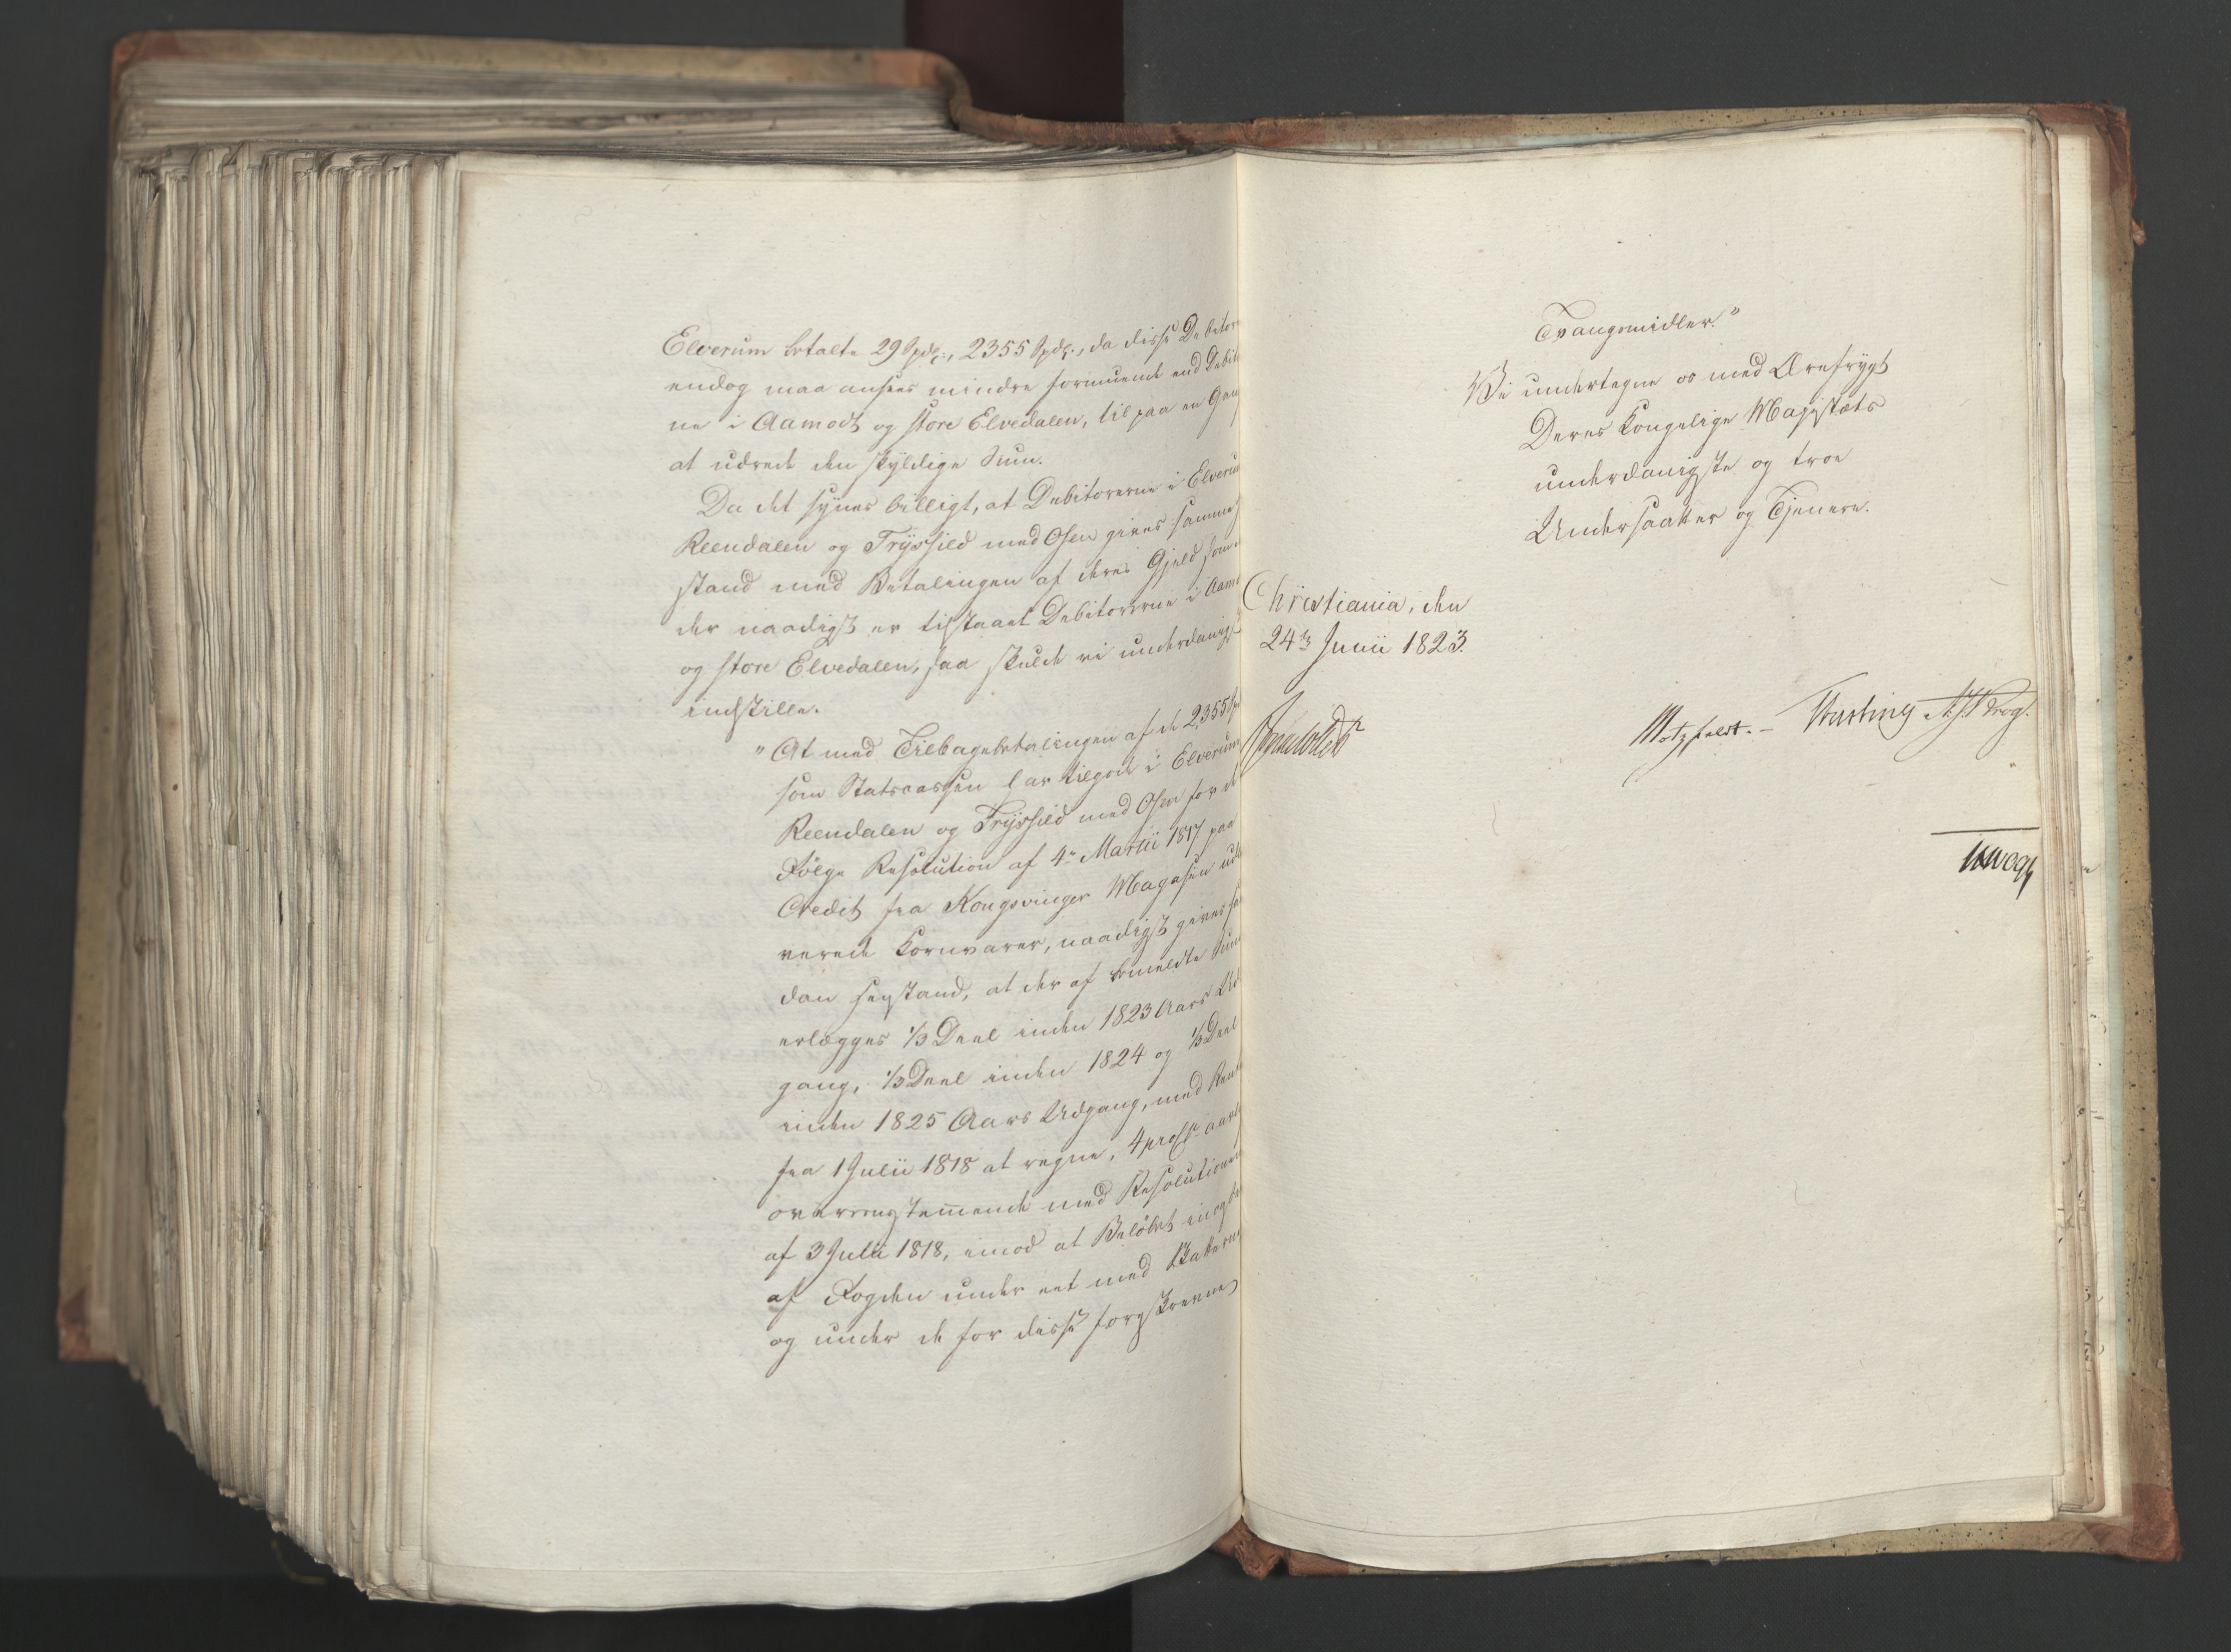 Elverum betalte 29 Spdlr., 2355 Spdlr., da disse Debitor
endog maa ansees mindre formuende end Debito
ne i Aamodt og store Elvedalen, til paa en Gang
at udrede den skyldige Sum.
Da det synes billigt, at Debitorerne i Elverum
Reendalen og Trysild med Osen gives samme
stand med Betalingen af deres Gjeld som
der naadigst er tilstaaet Debitorerne i Aamo
og store Elvedalen, saa skulde vi underdanigst
indstille.
"At med Tilbagebetalingen af de 2355 Sp
som Statscassen har tilgode i Elverum
Reendalen og Trysild med Osen for de
Følge Resolution af 4de Martii 1817 paa
Credit fra Kongsvinger Magasin udle
verede Kornvarer, naadigst gives saa
dan Henstand, at der af bemeldte Sum
erlægges 1/3 Deel inden 1823 Aars Ud
gang, 1/3 Deel inden 1824 og 1/3 Deel
inden 1825 Aars Udgang, med Rente
fra 1 Julii 1818 at regne, 4 pro Ct aarl
overeensstemmende med Resolutionen
af 3 Julii 1818, imod at Beløbet
af Fogden under eet med Skatterne
og under de for disse foreskrevne
Tvangsmidler."
Vi undertegne os med Ærefrygt
Deres Kongelige Majestæts
underdanigste og troe
Undersaatter og Tjenere.
Christiania, den
24de Junii 1823.
Motzfeldt. – Fasting